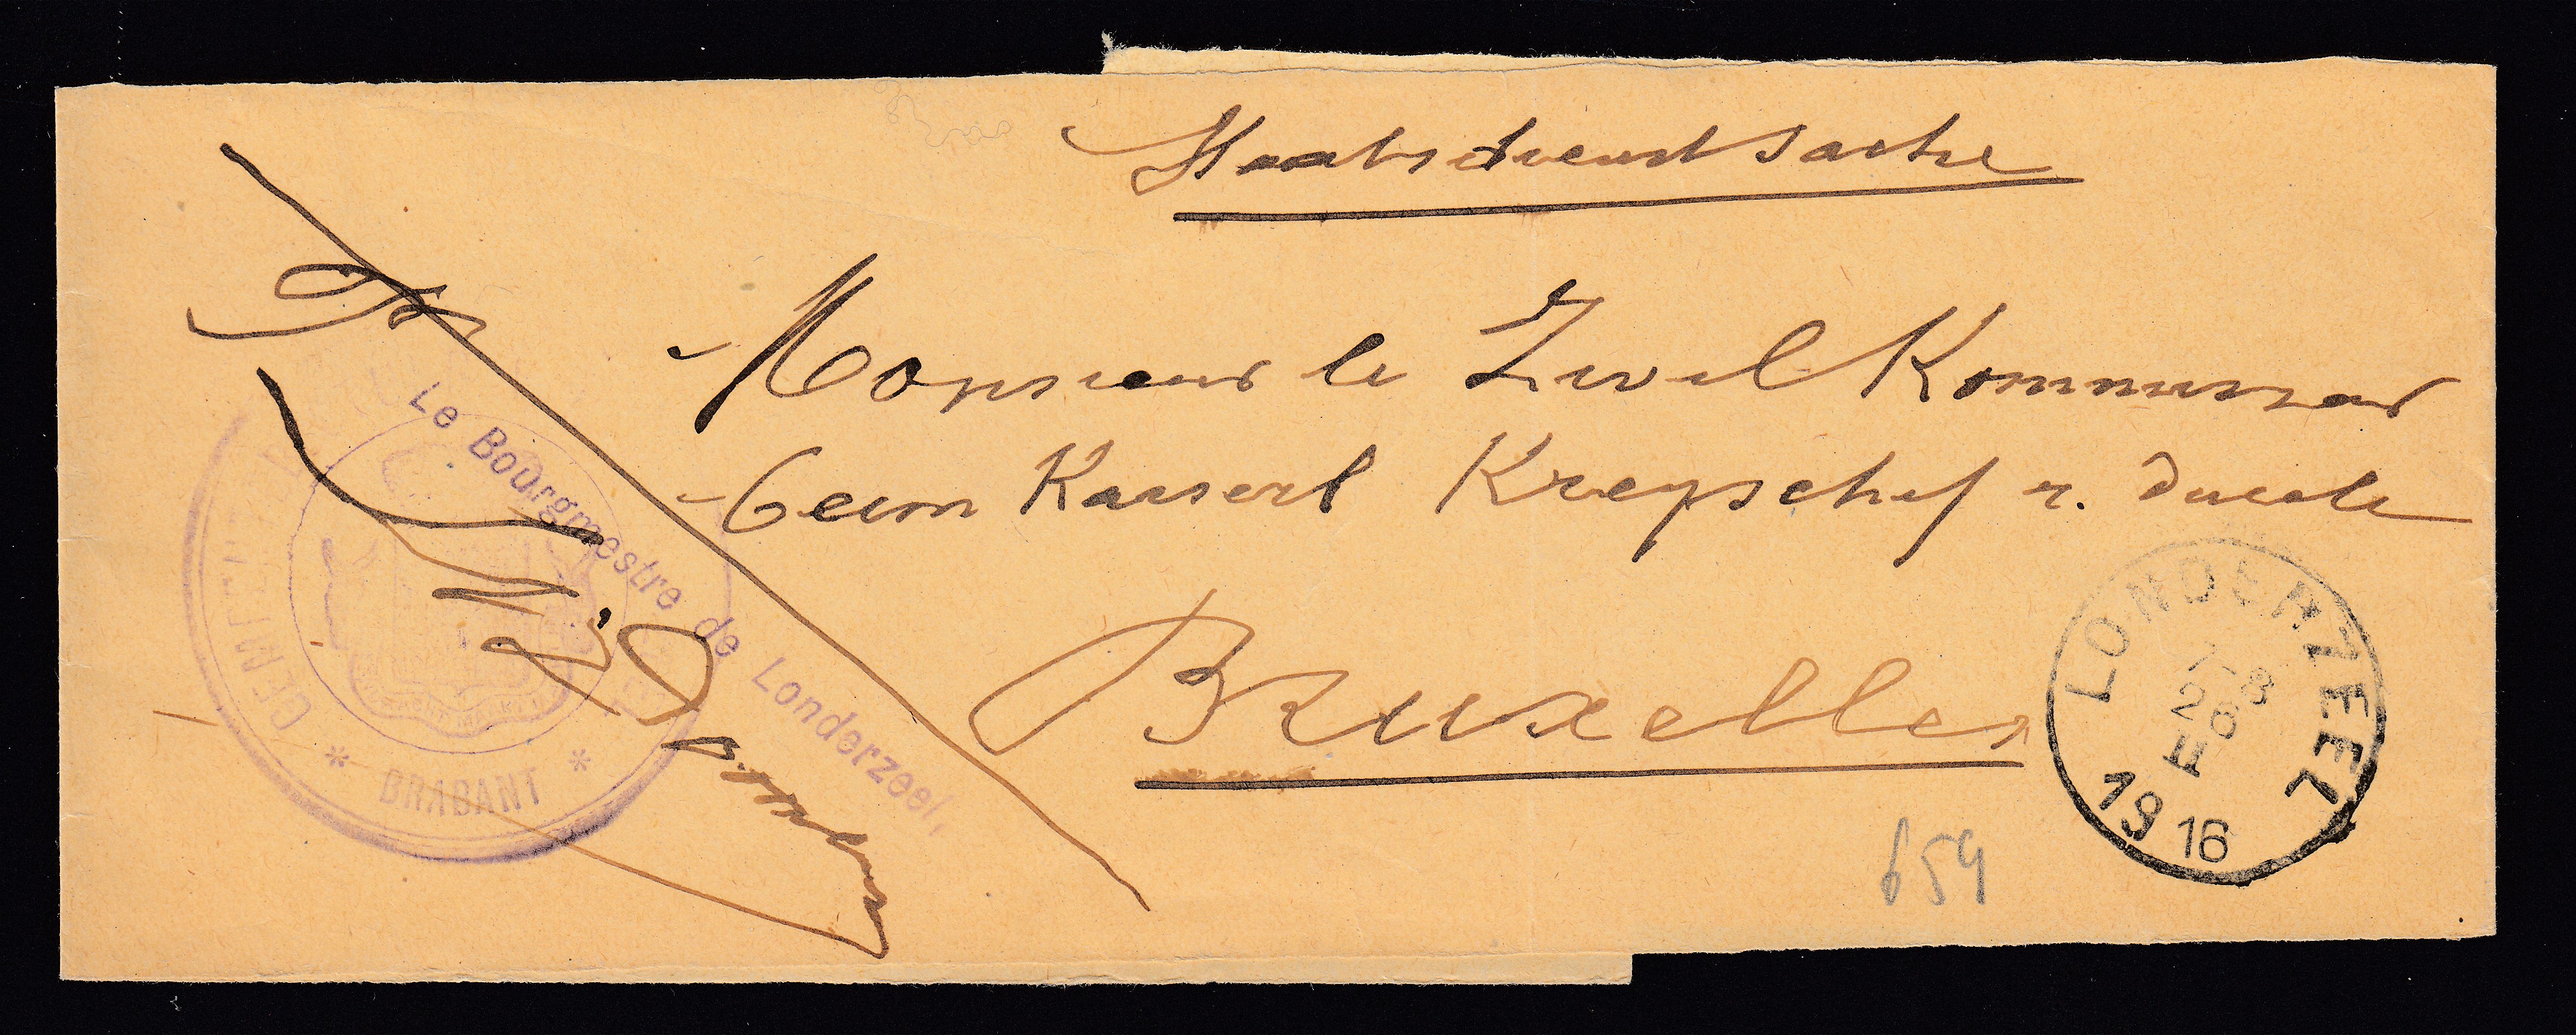 Staatsdienstsache
Monsieur le Zivil Kommissar
beim Kaiserl Kreischef
Bruxelles
Le Bourgmestre de Londerzeel,
* BRABANT *
LONDERZEEL
7-8
26
1916
659